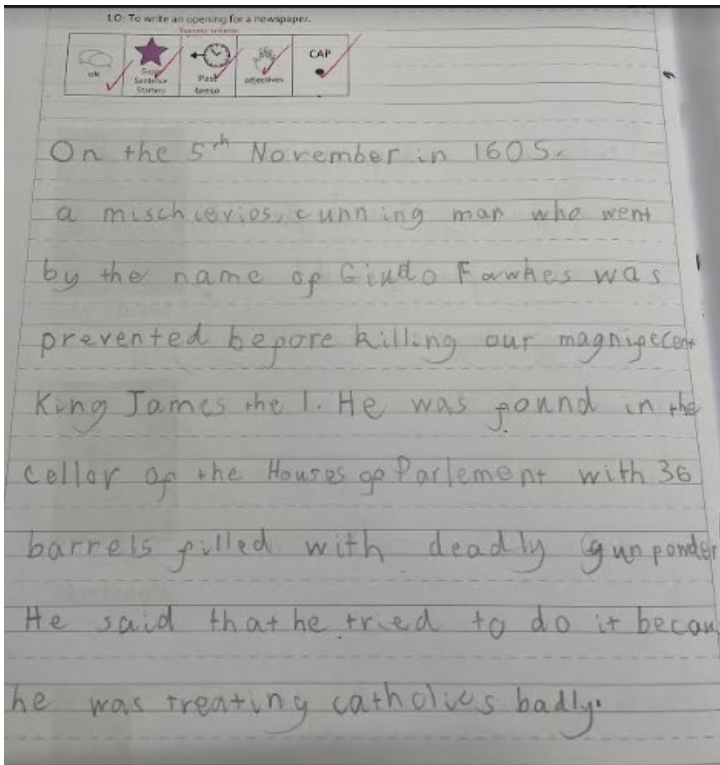 LO: To write an opening for a newspaper.
Success criteria
talk
Super Sentence Starters
Past tense
adjectives
CAP
On the 5th November in 1605,
a mischievios, cunning man who went
by the name of Giudo Fawhes was
prevented before killing our magnifecent
King James the 1. He was found in the
cellor of the Houses of Parlement with 36
barrels filled with deadly gunpowder
He said that he tried to do it becau
he was treating catholics badly.